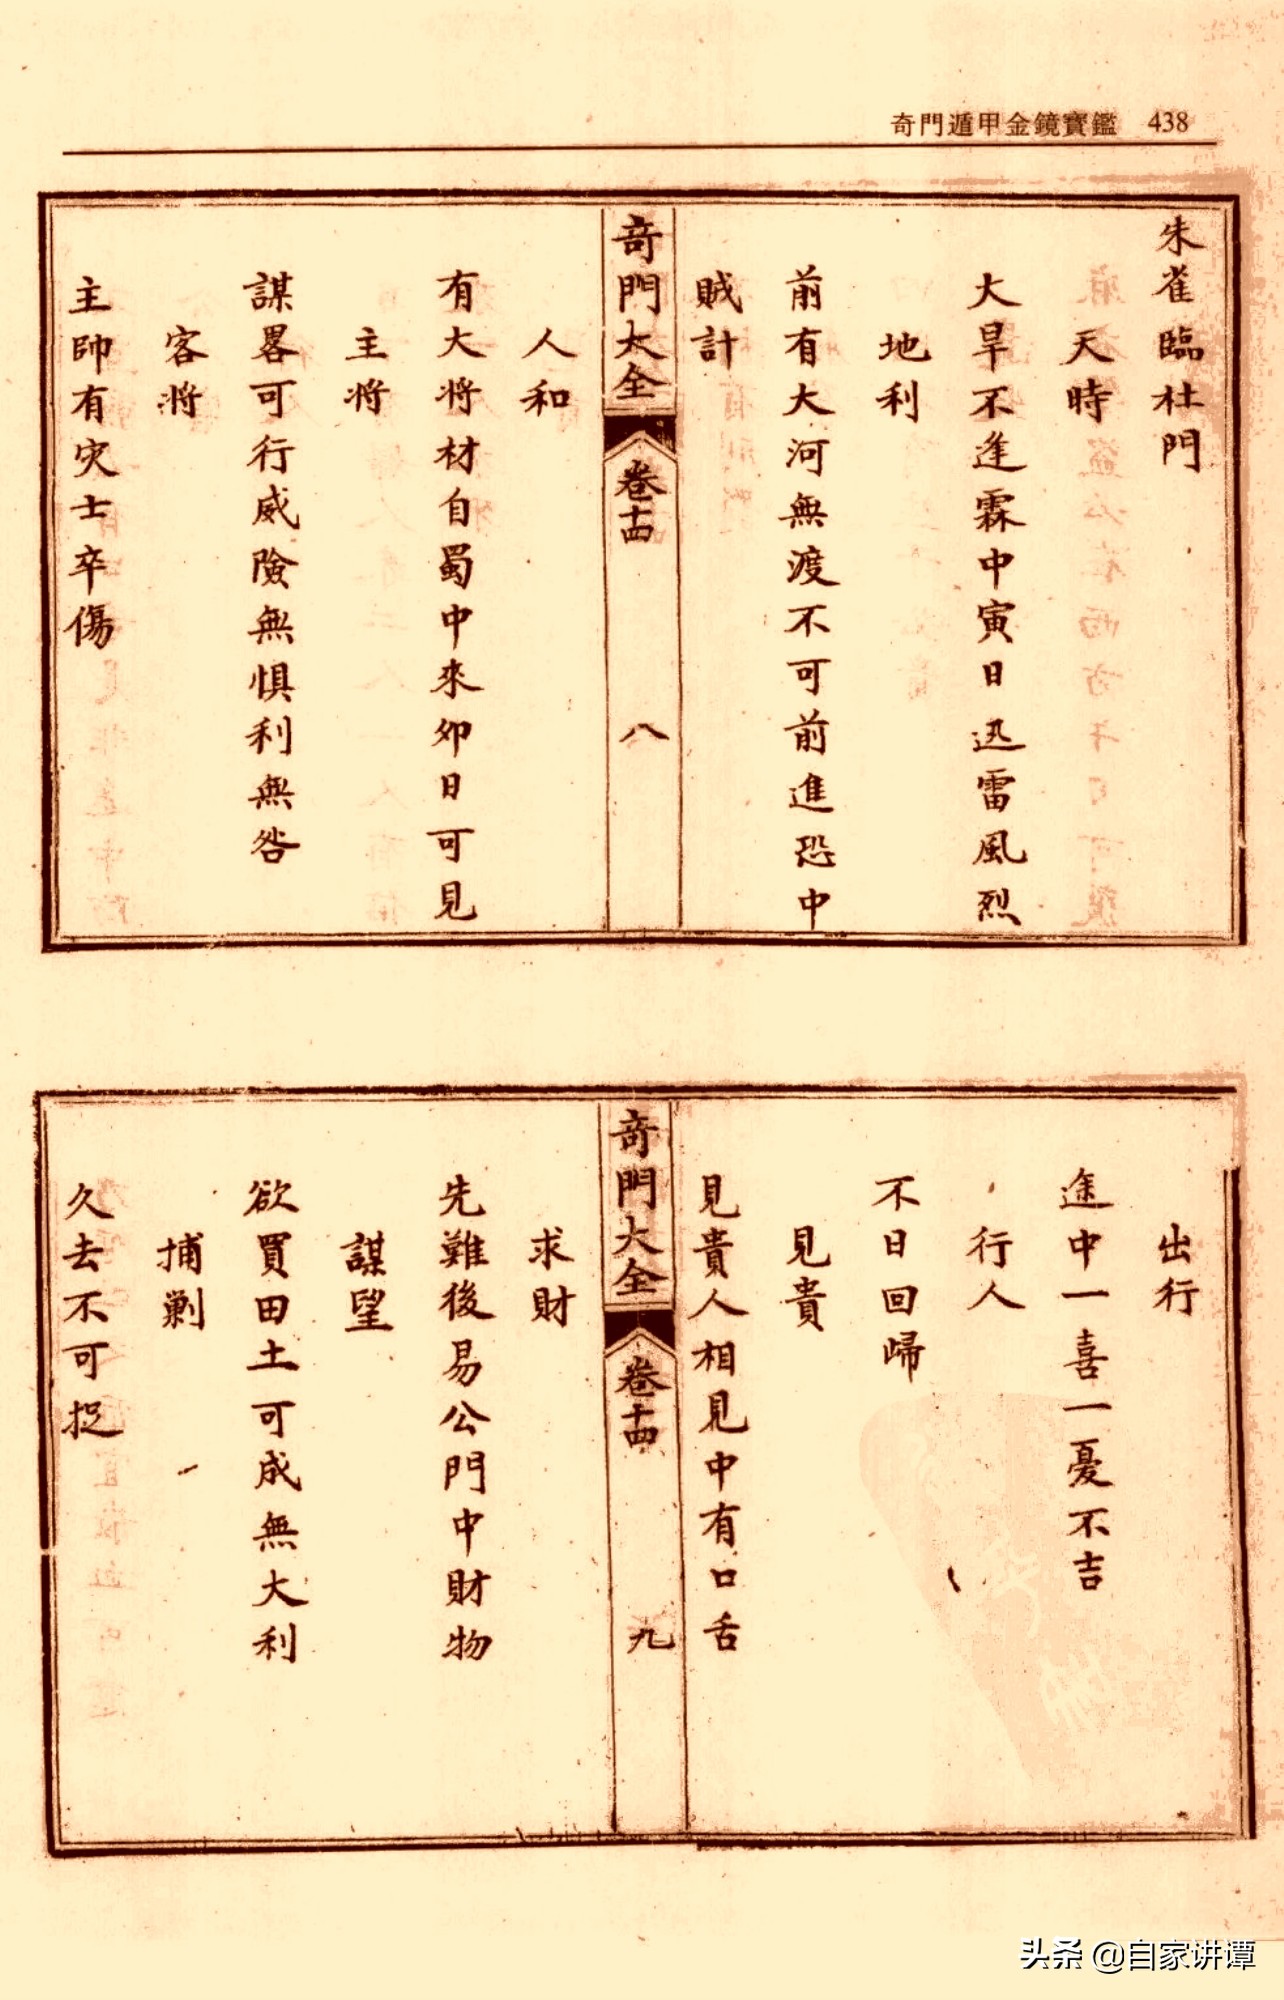 奇門遁甲金鏡寶鑑 438
朱雀臨杜門
天時
大旱不逢霖中寅日迅雷風烈
地利
前有大河無渡不可前進恐中
賊計
奇門大全 卷十四 八
人和
有大將材自蜀中來卯日可見
主將
謀畧可行威險無惧利無咎
客將
主帥有灾士卒傷
出行
途中一喜一憂不吉
行人
不日回歸
見貴
見貴人相見中有口舌
奇門大全 卷十四 九
求財
先難後易公門中財物
謀望
欲買田土可成無大利
捕剿
久去不可捉
头条 @自家讲谭